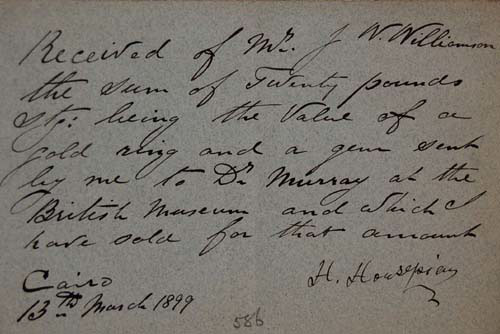 Received of Mr. J W. Williamson
the sum of Twenty pounds
Stg: being the Value of a
gold ring and a gem sent
by me to Dr Murray at the
British Museum and which I
have sold for that amount
H. Housepian
Cairo
13th March 1899
586